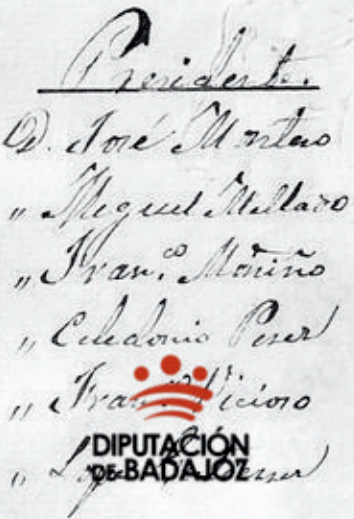 Presidente.
D. José Montero
" Miguel Mellado
" Fran.co Moriño
" Celedonio Perer
" Fran.co Vicioso
DIPUTACIÓN
DE BADAJOZ
"